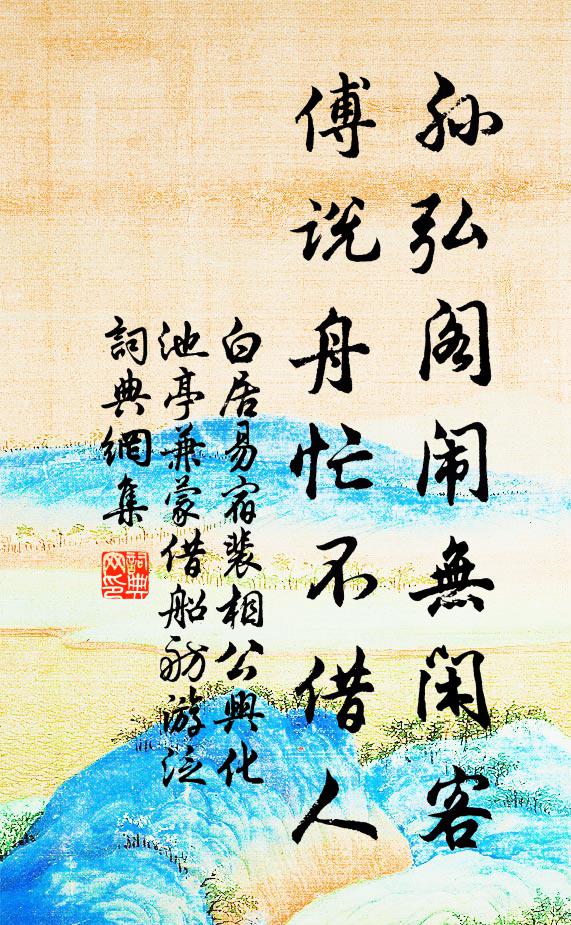 孙弘阁闹無闲客
傅说舟忙不借人
白居易宿裴相公興化
池亭兼蒙借船舫游泛
詞典網集
詞典
网印